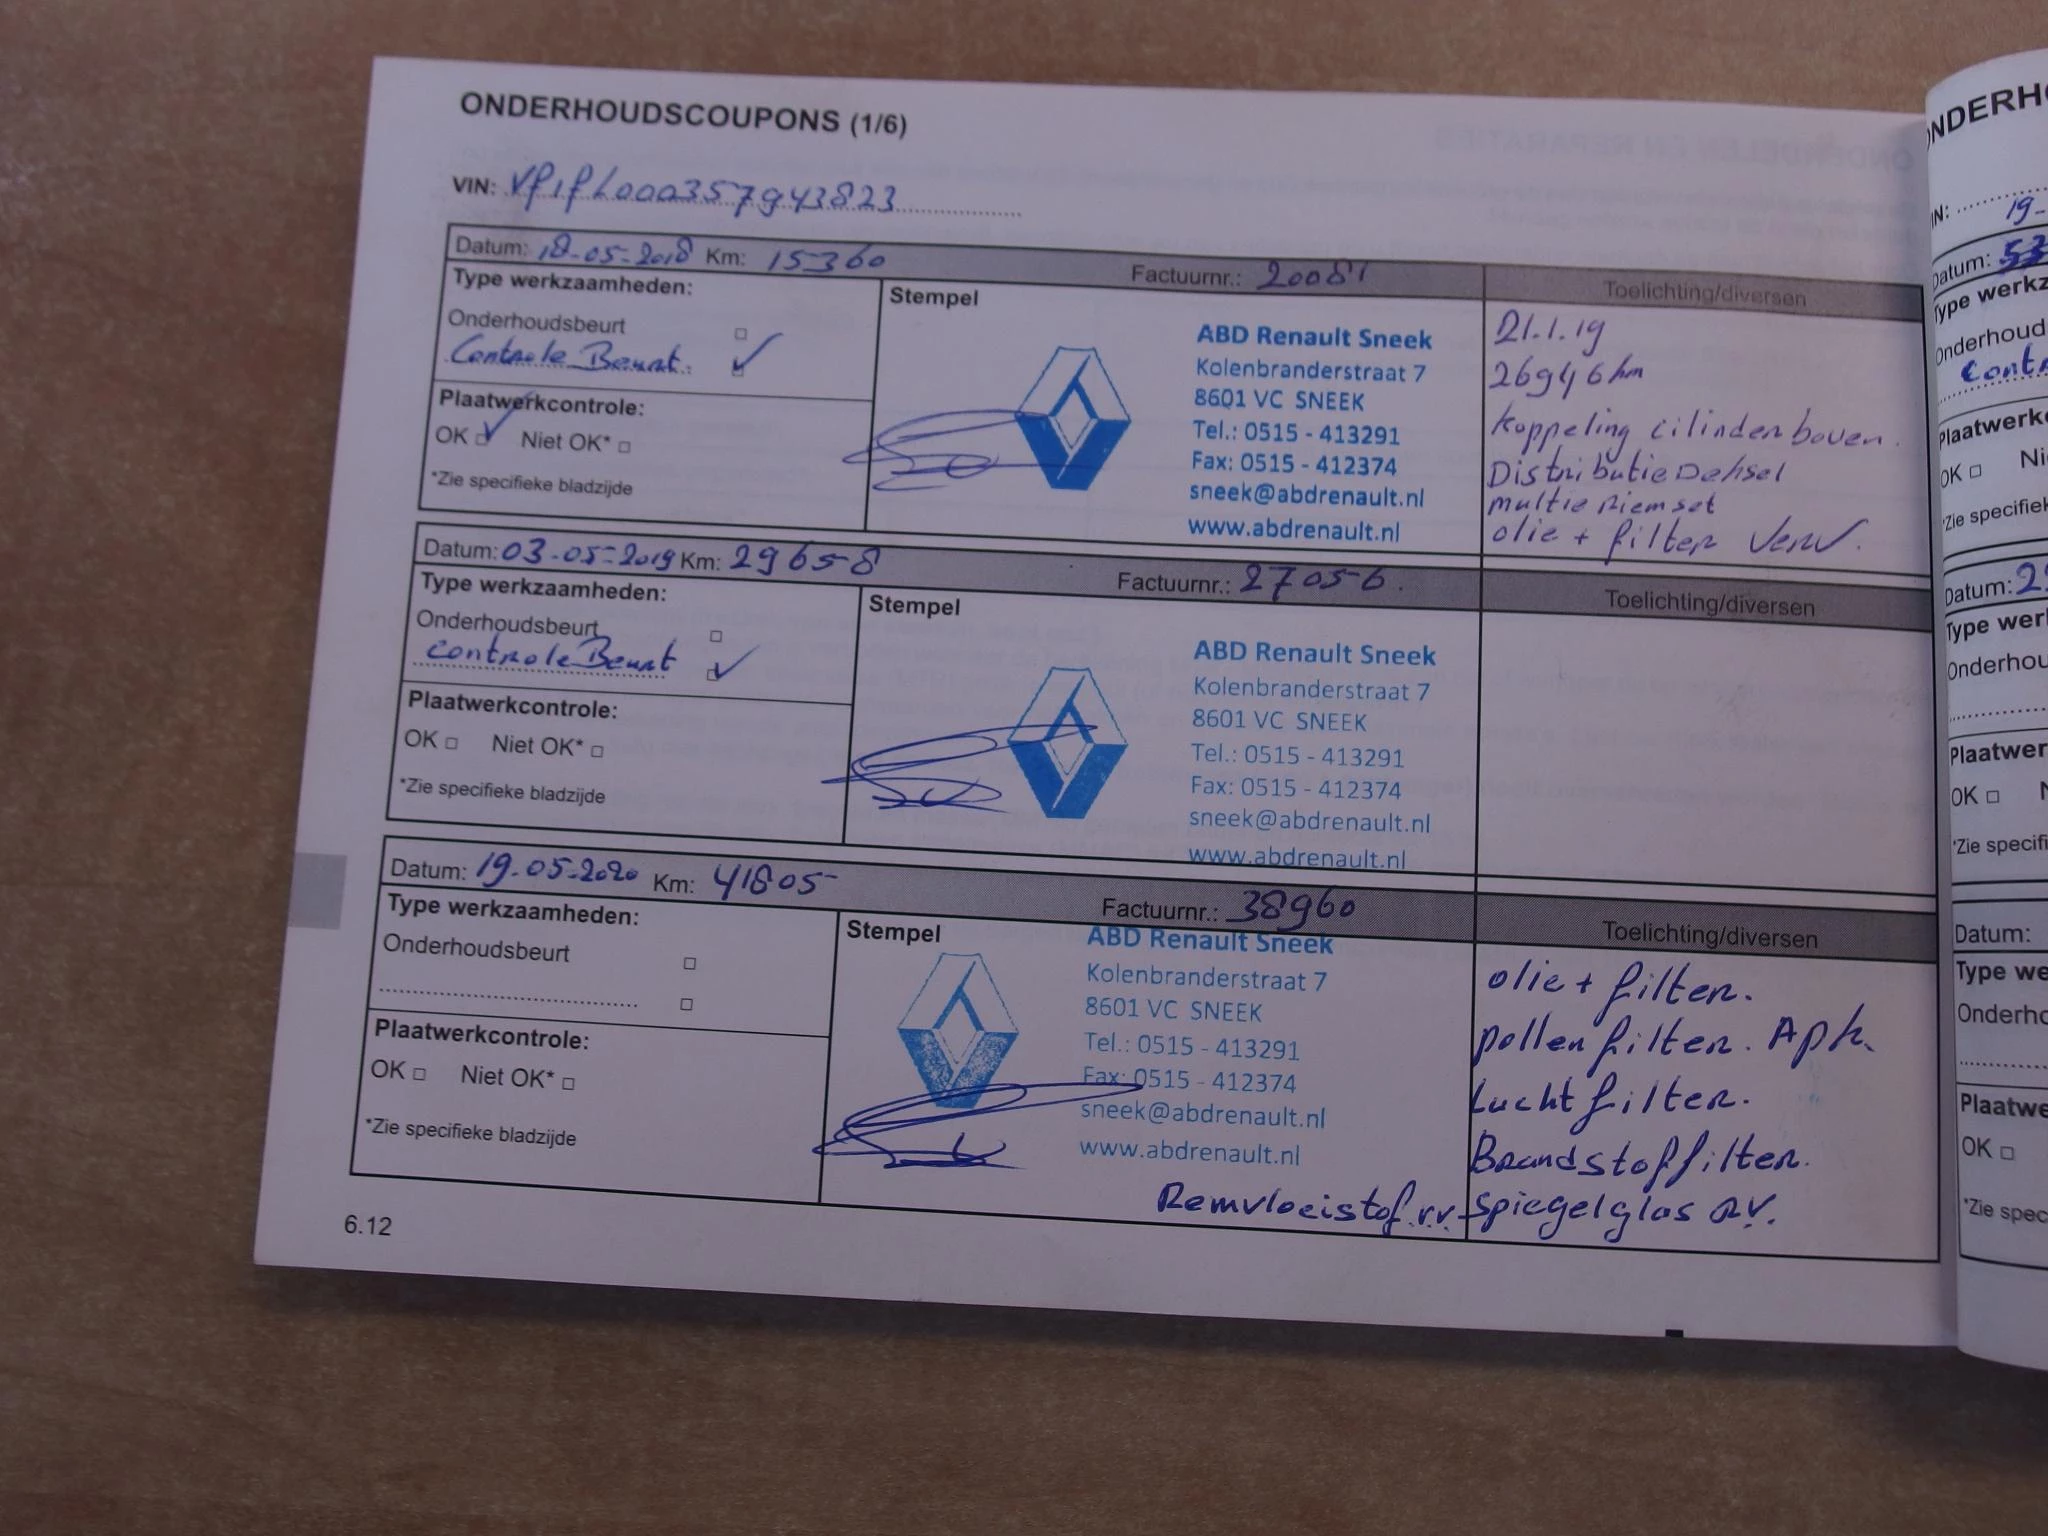 ONDERHOUDSCOUPONS (1/6)
VIN: Vf1fL000357943823
Datum: 18-05-2018 Km: 15360 Factuurnr.: 20081 Toelichting/diversen
Type werkzaamheden:
Onderhoudsbeurt
Controle Beurt.
Plaatwerkcontrole:
OK Niet OK*
*Zie specifieke bladzijde
Stempel
ABD Renault Sneek
Kolenbranderstraat 7
8601 VC SNEEK
Tel.: 0515 - 413291
Fax: 0515 - 412374
sneek@abdrenault.nl
www.abdrenault.nl
21.1.19
26946 km
Koppeling cilinder boven.
Distributie Deksel
multie riem set
olie + filter Verv.
Datum: 03-05-2019 Km: 29658 Factuurnr.: 27056. Toelichting/diversen
Type werkzaamheden:
Onderhoudsbeurt
controle Beurt
Plaatwerkcontrole:
OK Niet OK*
*Zie specifieke bladzijde
Stempel
ABD Renault Sneek
Kolenbranderstraat 7
8601 VC SNEEK
Tel.: 0515 - 413291
Fax: 0515 - 412374
sneek@abdrenault.nl
www.abdrenault.nl
Datum: 19-05-2020 Km: 41805 Factuurnr.: 38960 Toelichting/diversen
Type werkzaamheden:
Onderhoudsbeurt
Plaatwerkcontrole:
OK Niet OK*
*Zie specifieke bladzijde
Stempel
ABD Renault Sneek
Kolenbranderstraat 7
8601 VC SNEEK
Tel.: 0515 - 413291
Fax: 0515 - 412374
sneek@abdrenault.nl
www.abdrenault.nl
olie + filter.
pollenfilter. Apk.
Luchtfilter.
Brandstoffilter.
Remvloeistof.v.v. spiegelglas R.V.
6.12
Datum:
OK
Datum:
OK
Datum:
OK